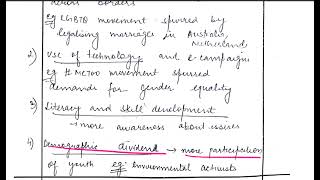 across borders
eg LGBTQ movement spurred by
legalising marriages in Australia,
Netherland
2) use of technology and e-campaigns
eg # METOO movement spurred
demands for gender equality
3) Literacy and skill development
→ more awareness about issues
4) Demographic dividend → more participation
of youth eg: environmental activists